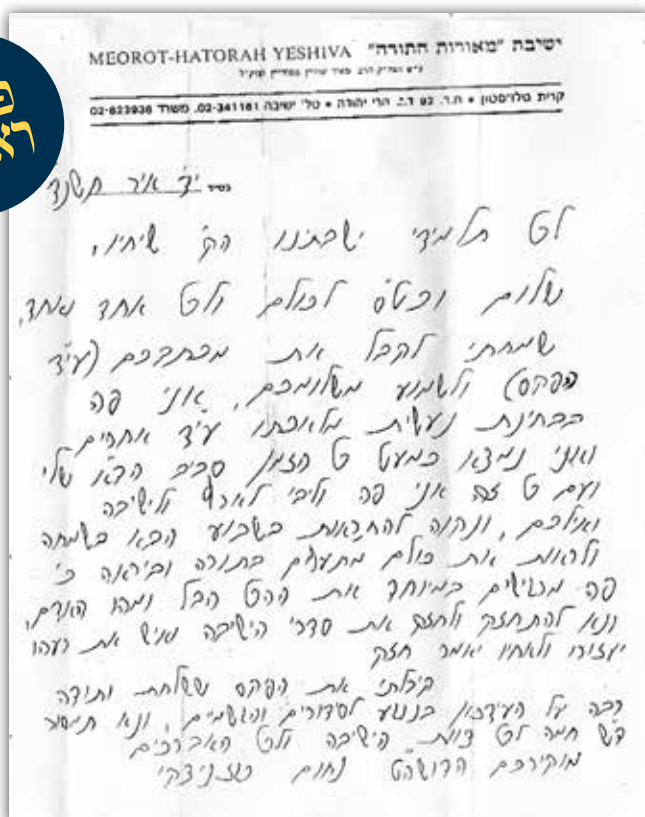 ישיבת "מאורות התורה" MEOROT-HATORAH YESHIVA
קרית טלז־סטון • ת.ד. 92 ד.נ. הרי יהודה • טל' ישיבה 02-341161, משרד 02-823936
י"ד אייר תשנ"ד
לכל תלמידי ישיבתנו הק' שיחיו,
שלום וכט"ס לכולם ולכל אחד ואחד,
שמחתי לקבל את מכתבכם (ע"ד
הפקס) ולשמוע משלומכם, אני פה
בבחינת נעשית מלאכתו ע"י אחרים
ואני נמצא כמעט כל הזמן סביב
ועם כל זה אני פה וליבי לארץ ולישיבה
ואליכם, ונקוה להתראות בשבוע הבא בשמחה
ולראות את כולם מתעלים בתורה וביראה כי
פה מרגישים במיוחד את הכל הבל ומהו האדם,
ונא להתחזק ולחזק את סדרי הישיבה ואיש את רעהו
יעזורו ולאחיו יאמר חזק
קיבלתי את הפקס ששלחת ותודה
רבה על העידכון בנוגע לסדורים והגשמים, ונא תמסור
ד"ש חמה לכל צוות הישיבה ולכל האברכים
מוקירכם הדושה"ט נחום